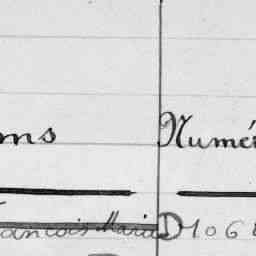 oms Numér
rancois Maria D106